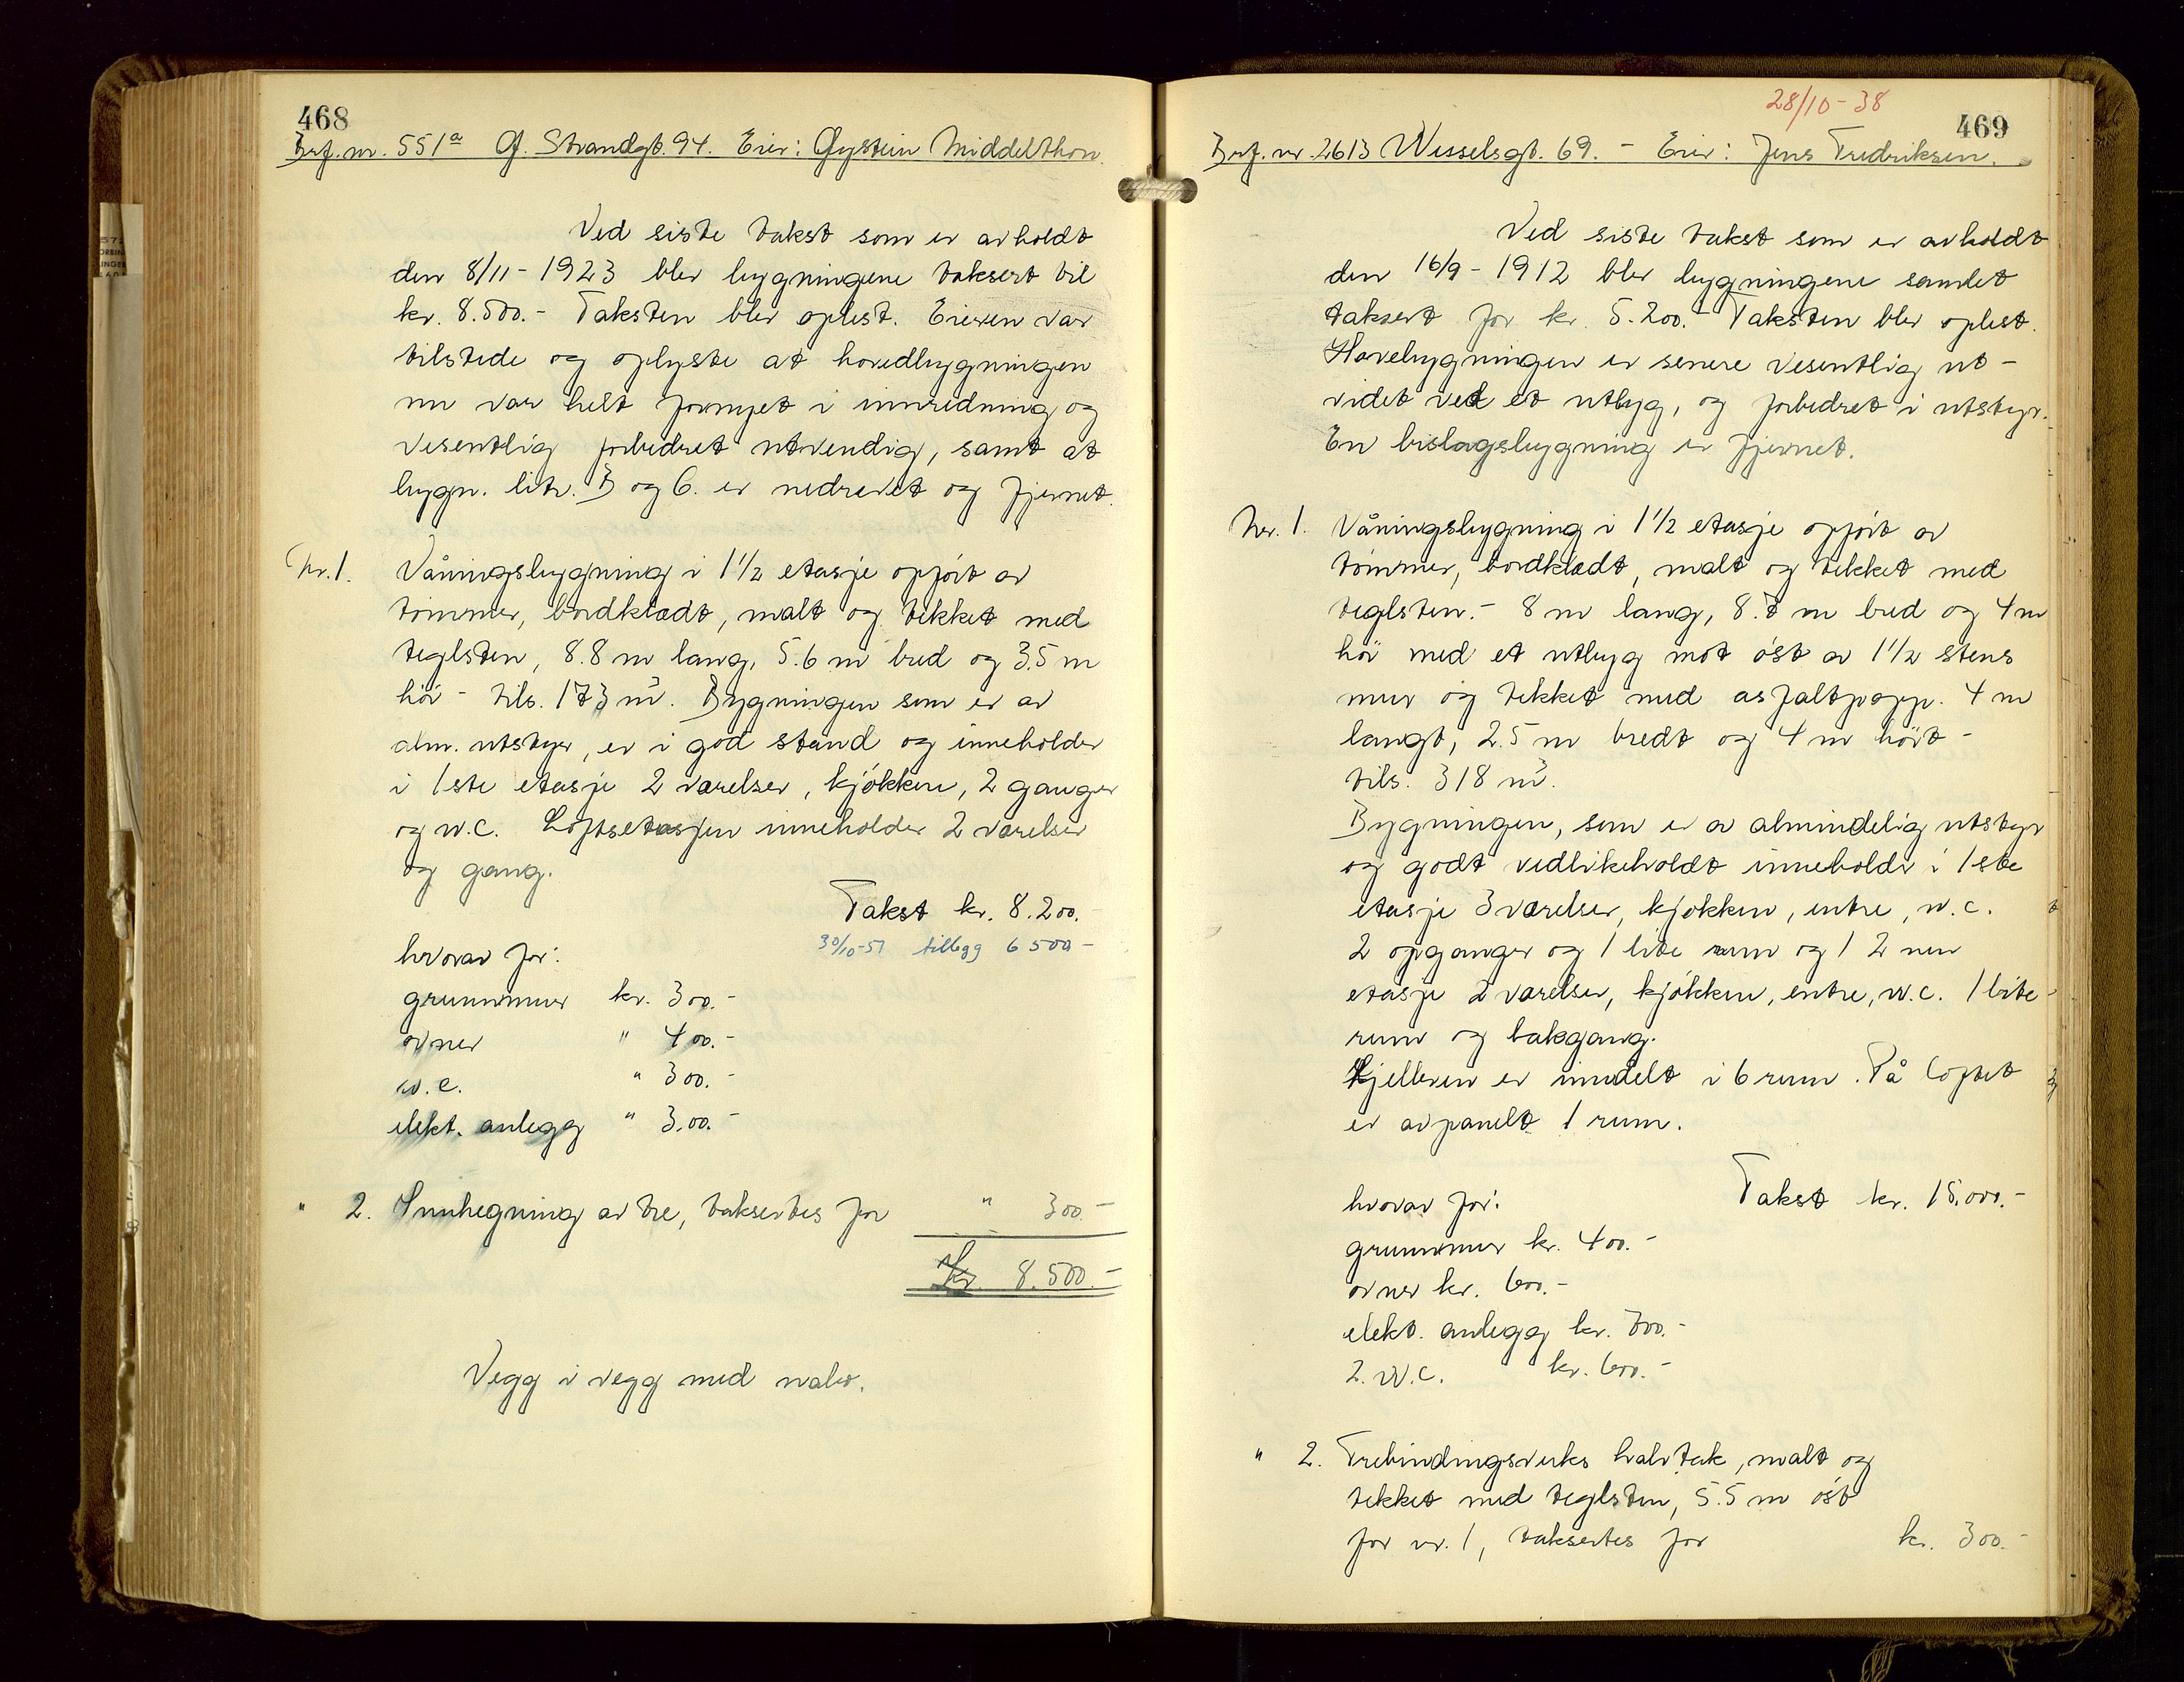 468
Brf. nr. 551ª G. Strandgt. 94. Eier: Øystein Middelthon.
Ved siste takst som er avholdt
den 8/11 - 1923 blev bygningene taksert til
kr. 8.500.- Taksten blev oplest. Eieren var
tilstede og oplyste at hovedbygningen
nu var helt fornyet i innredning og
vesentlig forbedret utvendig, samt at
bygn. litr. B og C. er nedrevet og fjernet.
Nr. 1. Våningsbygning i 1 1/2 etasje opført av
tømmer, bordklædt, malt og tekket med
teglsten, 8.8 m lang, 5.6 m bred og 3.5 m
høi - tils. 173 m³. Bygningen som er av
alm. utstyr, er i god stand og inneholder
i 1ste etasje 2 værelser, kjøkken, 2 ganger
og w.c. Loftsetasjen inneholder 2 værelser
og gang.
Takst kr. 8.200.-
30/10-51 tillegg 6500-
hvorav for:
grunnmur kr. 300.-
ovner " 400.-
w.c. " 300.-
elekt. anlegg " 300.-
" 2. Innhegning av tre, taksertes for " 300.-
Kr. 8.500.-
Vegg i vegg med nabo.
28/10-38
469
Brf. nr. 2613 Wesselsgt. 69. - Eier: Jens Fredriksen.
Ved siste takst som er avholdt
den 16/9 - 1912 blev bygningene samlet
taksert for kr. 5.200.- Taksten blev oplest.
Hovebygningen er senere vesentlig ut-
videt ved et utbyg, og forbedret i utstyr.
En bislagsbygning er fjernet.
Nr. 1. Våningsbygning i 1 1/2 etasje opført av
tømmer, bordklædt, malt og tekket med
teglsten.- 8 m lang, 8.7 m bred og 4 m
høi med et utbyg mot øst av 1 1/2 stens
mur og tekket med asfaltpapp. 4 m
langt, 2.5 m bredt og 4 m høit -
tils. 318 m³.
Bygningen, som er av almindelig utstyr
og godt vedlikeholdt inneholder i 1ste
etasje 3 værelser, kjøkken, entre, w.c.
2 opganger og 1 lite rum og i 2 nen
etasje 2 værelser, kjøkken, entre, w.c. 1 lite
rum og bakgang.
Kjelleren er inndelt i 6 rum. På loftet
er avpanelt 1 rum.
Takst kr. 15.000.-
hvorav for:
grunnmur kr. 400.-
ovner kr. 600.-
elekt. anlegg kr. 700.-
2. W.C. kr. 600.-
" 2. Trebindingsverks halvtak, malt og
tekket med teglsten, 5.5 m øst
for nr. 1, taksertes for kr. 300.-